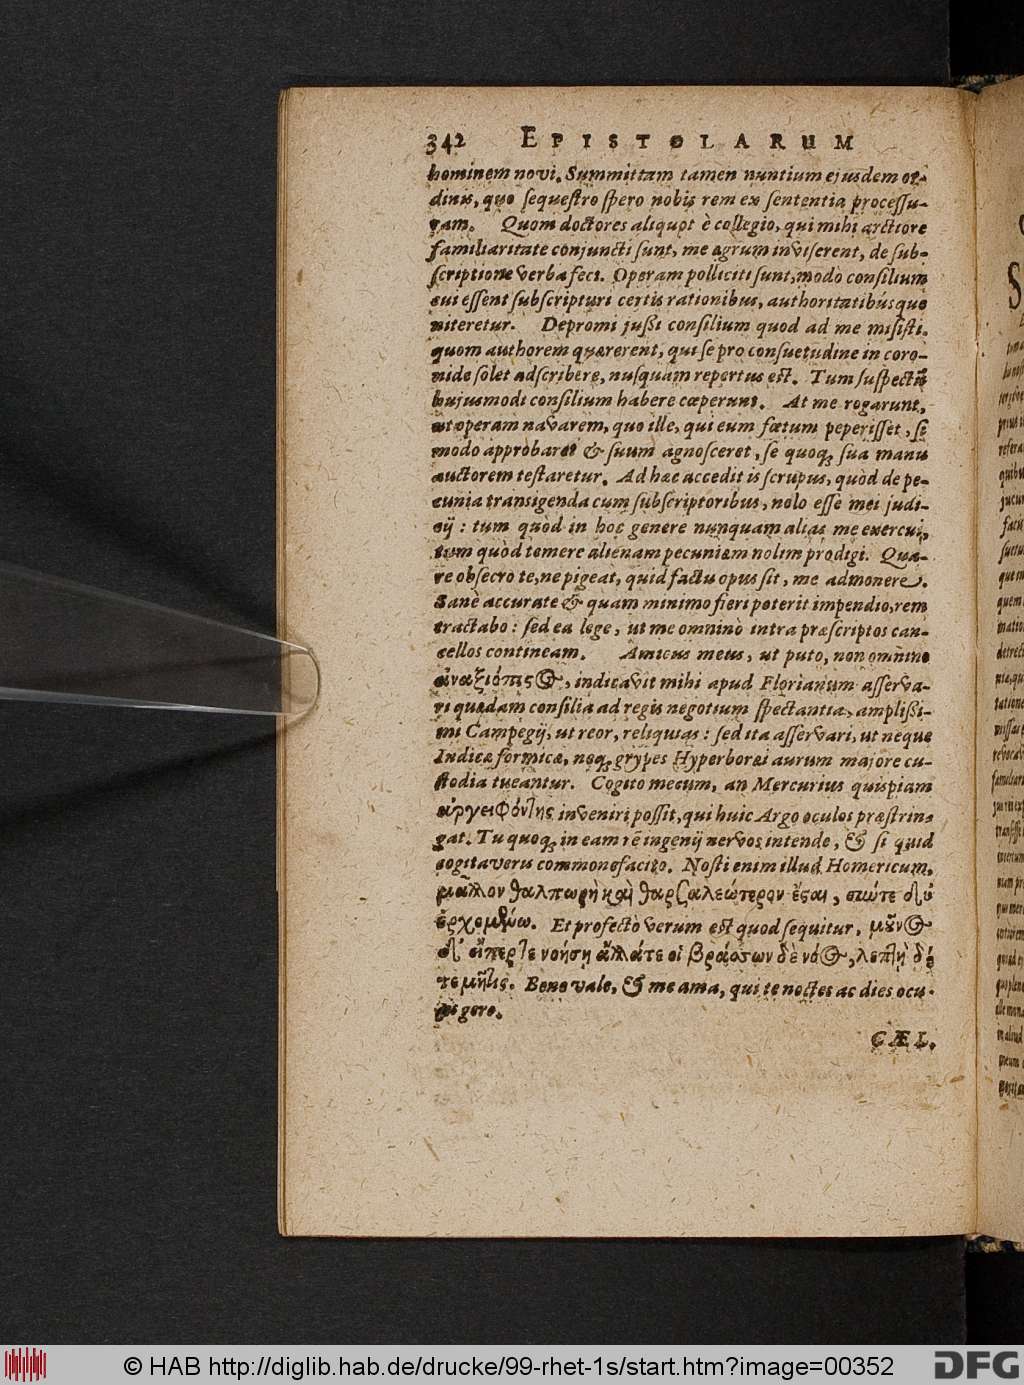 342 EPISTOLARUM
hominem novi. Summittam tamen nuntium ejusdem or-
dinis, quo sequestro spero nobis rem ex sententia processu-
ram. Quom doctores aliquot è collegio, qui mihi arctiore
familiaritate conjuncti sunt, me ægrum inviserent, de sub-
scriptione verba feci. Operam polliciti sunt, modo consilium
cui essent subscripturi certis rationibus, authoritatibúsque
niteretur. Depromi jußi consilium quod ad me misisti.
quom authorem quærerent, qui se pro consuetudine in coro-
nide solet adscribere, nusquam repertus est. Tum suspectũ
hujusmodi consilium habere cœperunt. At me rogarunt,
ut operam navarem, quo ille, qui eum fœtum peperisset, si
modo approbaret & suum agnosceret, se quoq; sua manu
auctorem testaretur. Ad hæc accedit is scrupus, quòd de pe-
cunia transigenda cum subscriptoribus, nolo esse mei judi-
cij : tum quòd in hoc genere nunquam alias me exercui,
tum quòd temere alienam pecuniam nolim prodigi. Qua-
re obsecro te, ne pigeat, quid factu opus sit, me admonere.
Sanè accurate & quam minimo fieri poterit impendio, rem
tractabo : sed ea lege, ut me omninò intra præscriptos can-
cellos contineam. Amicus meus, ut puto, non omnino
ἀναξιόπιςος, indicavit mihi apud Florianum asserva-
ri quædam consilia ad regis negotium spectantia, amplißi-
mi Campegij, ut reor, reliquias : sed ita asservari, ut neque
Indicæ formicæ, neq; grypes Hyperborei aurum majore cu-
stodia tueantur. Cogito mecum, an Mercurius quispiam
ἀργειφόντης inveniri possit, qui huic Argo oculos præstrin-
gat. Tu quoq; in eam rē ingenij nervos intende, & si quid
cogitaveris commonefacito. Nosti enim illud Homericum,
μᾶλλον θαλπωρὴ καὶ θαρσαλεώτερον ἔςαι, σιώτε δύ
ἐρχομένω. Et profectò verum est quod sequitur, μοῦνος
δ' εἴπερ τε νοήση ἀλλάτε οἱ βράσσων δὲ νόος, λεπτὴ δέ
τε μῆτις. Bene vale, & me ama, qui te noctes ac dies ocu-
lis gero.
CÆL.
© HAB http://diglib.hab.de/drucke/99-rhet-1s/start.htm?image=00352
DFG